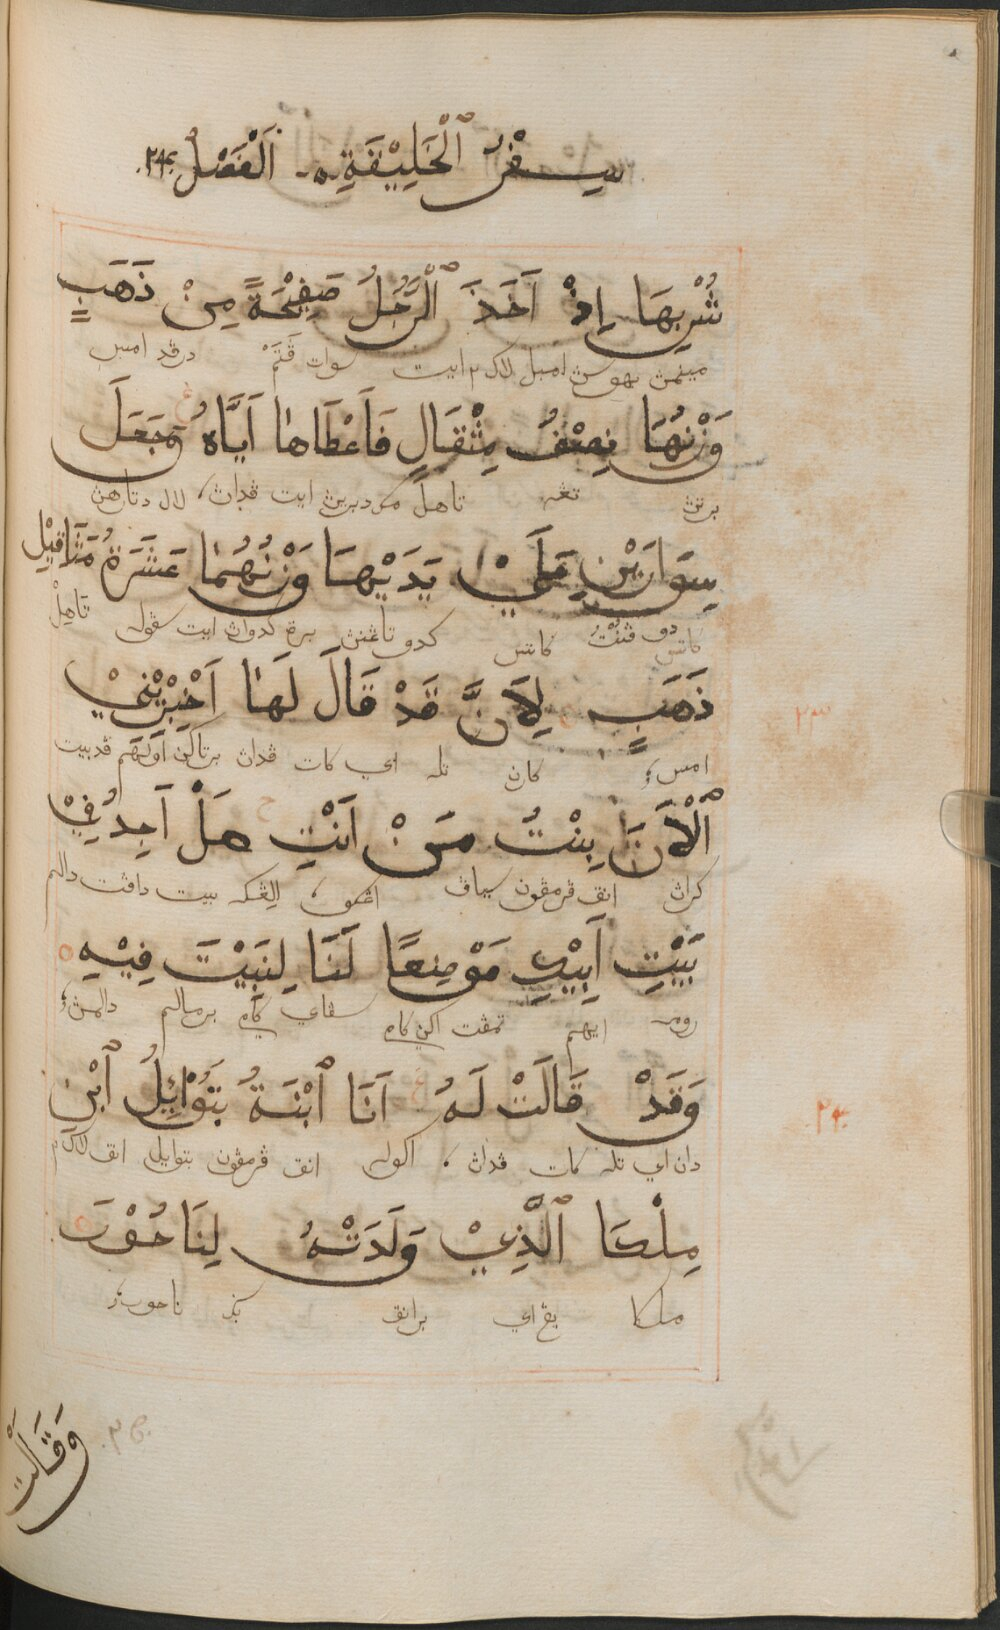 سِفْرُ ٱلْخَلِيْقَةِ ۞ اَلْفَصْلُ ٢٤
شُرْبِهَا اِذْ اَخَذَ ٱلرَّجُلُ صَفِيْحَةً مِنْ ذَهَبٍ
مينمڽ امبيل لاكي٢ ايت سوات درڤد امس
وَزْنُهَا نِصْفُ مِثْقَالٍ فَاَعْطَاهَا اَيَّاهُ وَجَعَلَ
برتڽ تڠه تاهل مك دبريڽ ايت ڤداڽ، لال دتارهڽ
سِوَارَيْنِ عَلَيْ يَدَيْهَا وَزْنُهُمَا عَشَرَةُ مَثَاقِيْلِ
دو كاتس كدو تاڠنڽ برة كدواڽ ايت سڤوله تاهل
ذَهَبٍ لِاَنَّ قَدْ قَالَ لَهَا اَخْبِرْيْنِيْ
امس؛ كارن تله اي كات ڤداڽ برتاكن اولهم ڤدبيت
ٱلْاَنَ بِنْتُ مَنْ اَنْتِ هَلْ اَجِدُ فِيْ
كراڽ انق ڤرمڤون سياڤ اڠكو، بيت داڤت دالم
بَيْتِ اَبِيْكِ مَوْضِعًا لَنَا لِنَبِيْتَ فِيْهِ
رومه ايهم تمڤت اكن كامي سڤاي كامي برمالم دالمڽ؛
وَقَدْ قَالَتْ لَهُ اَنَا ٱبْنَةُ بَتُوْئِيْلُ ٱبْنِ
دان اي تله كات ڤداڽ، اكوله انق ڤرمڤون بتوايل انق لاكي٢
مِلْكَا ٱلَّذِيْ وَلَدَتْهُ لِنَاحُوْرَ
ملكا يڠ اي برانق بݢي ناحور؛
٢٣
٢٤
وَقَالَت